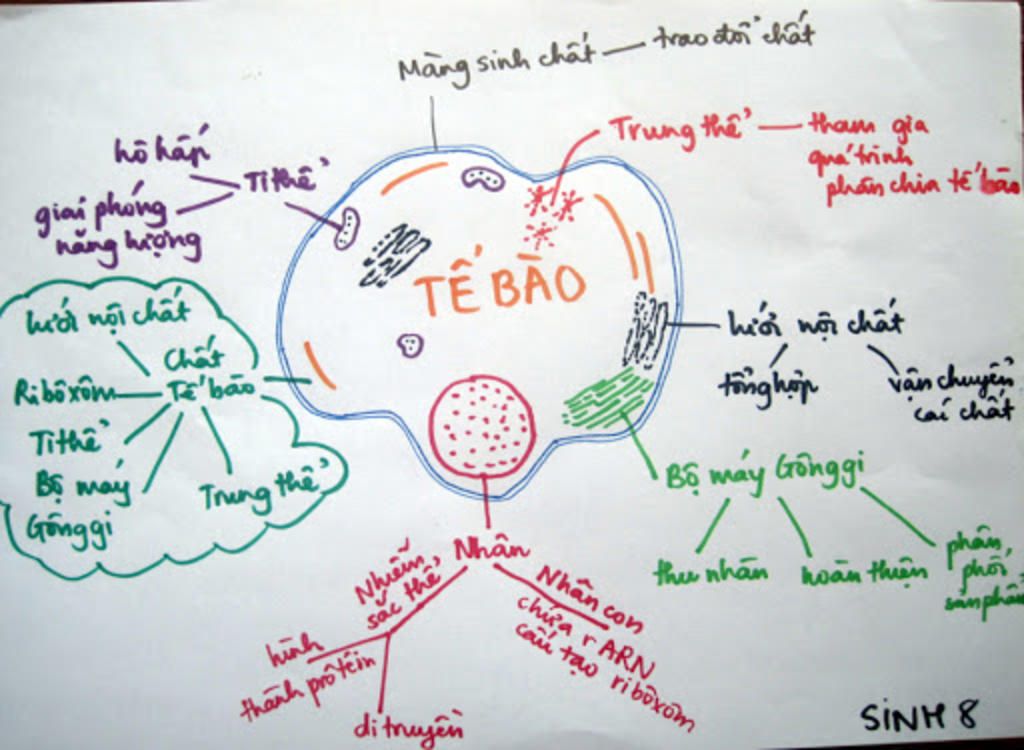 Màng sinh chất — trao đổi chất
Trung thể — tham gia
quá trình
phân chia tế bào
hô hấp
Ti thể
giải phóng
năng lượng
TẾ BÀO
lưới nội chất
Chất
Tế bào
Ribôxôm
Ti thể
Bộ máy
Gônggi
Trung thể
lưới nội chất
tổng hợp
vận chuyển
các chất
Bộ máy Gônggi
thu nhân
hoàn thiện
phân
phối
sản phẩm
Nhân
Nhiễm
sắc thể
hình
thành prôtêin
di truyền
Nhân con
chứa rARN
cấu tạo ribôxôm
SINH 8